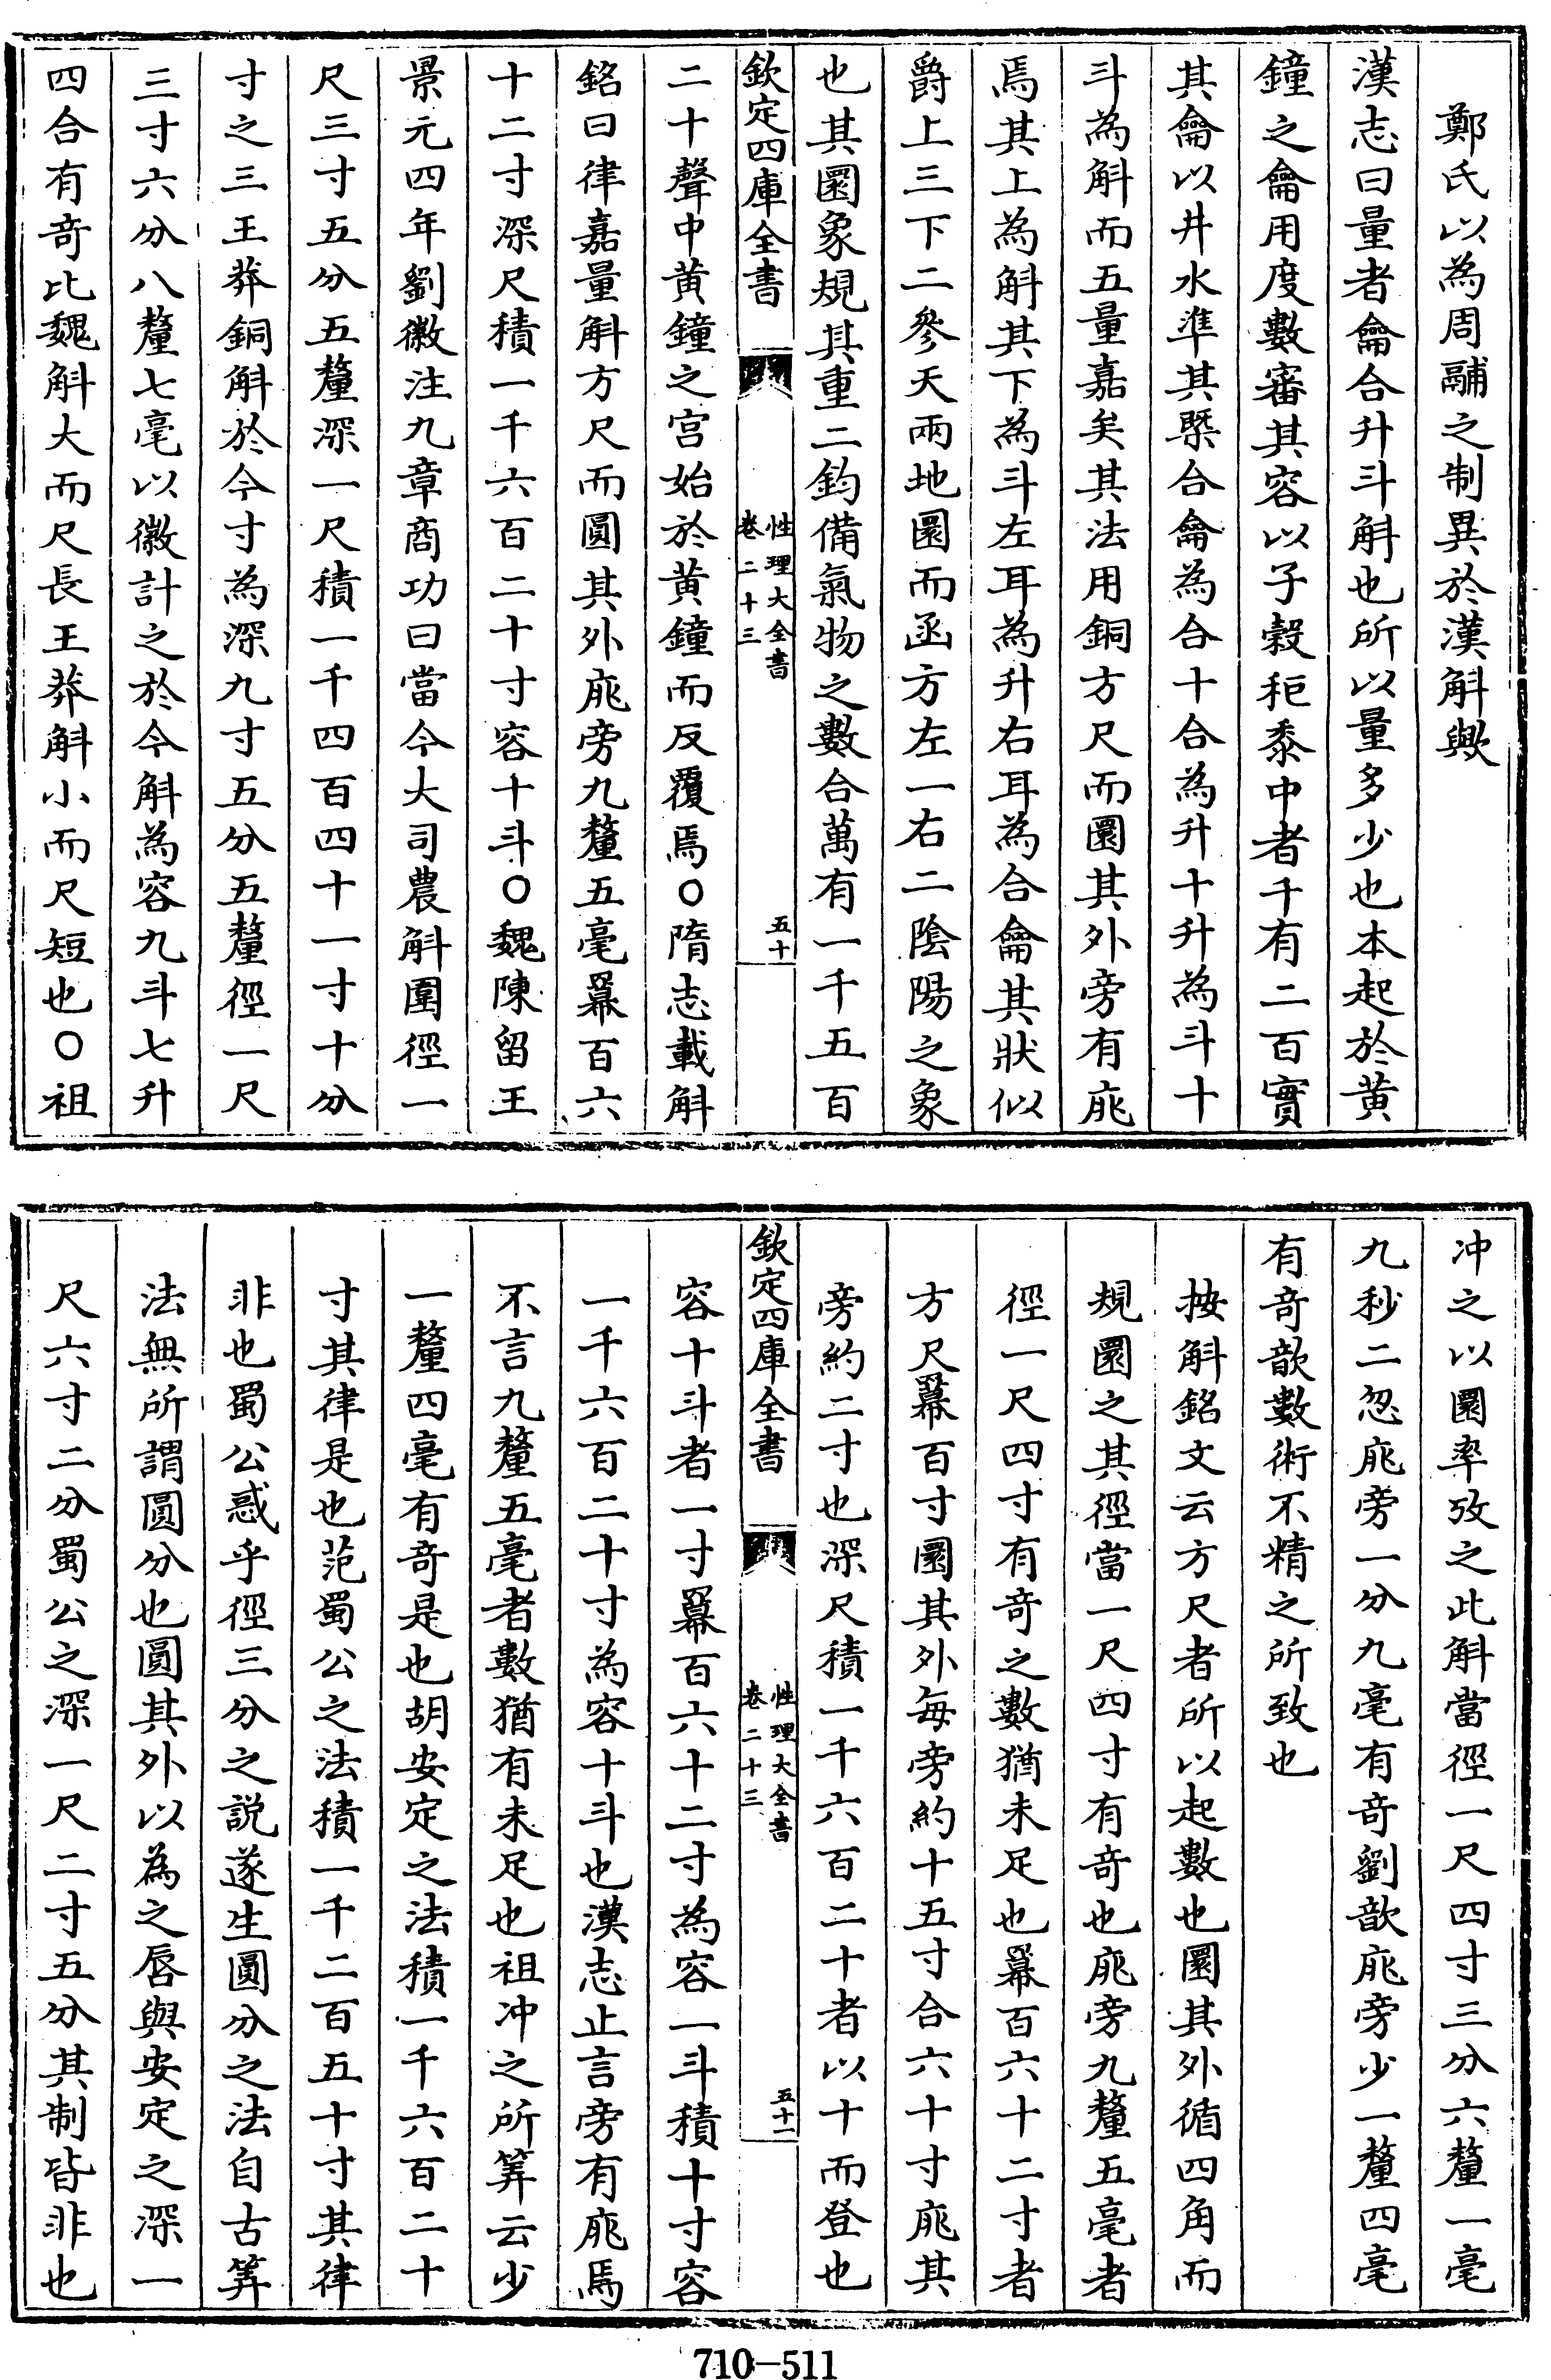 鄭氏以為周鬴之制異於漢斛歟
漢志曰量者龠合升斗斛也所以量多少也本起於黄
鐘之龠用度數審其容以子穀秬黍中者千有二百實
其龠以井水準其槩合龠為合十合為升十升為斗十
斗為斛而五量嘉矣其法用銅方尺而圜其外旁有庣
焉其上為斛其下為斗左耳為升右耳為合龠其狀似
爵上三下二參天兩地圜而函方左一右二隂陽之象
也其圜象規其重二鈞備氣物之數合萬有一千五百
欽定四庫全書
性理大全書
卷二十三
五十
二十聲中黄鐘之宫始於黄鐘而反覆焉○隋志載斛
銘曰律嘉量斛方尺而圓其外庣旁九釐五毫冪百六
十二寸深尺積一千六百二十寸容十斗○魏陳留王
景元四年劉徽注九章商功曰當今大司農斛圍徑一
尺三寸五分五釐深一尺積一千四百四十一寸十分
寸之三王莽銅斛於今寸為深九寸五分五釐徑一尺
三寸六分八釐七毫以徽計之於今斛為容九斗七升
四合有奇比魏斛大而尺長王莽斛小而尺短也○祖
冲之以圜率攷之此斛當徑一尺四寸三分六釐一毫
九秒二忽庣旁一分九毫有奇劉歆庣旁少一釐四毫
有奇歆數術不精之所致也
按斛銘文云方尺者所以起數也圜其外循四角而
規圜之其徑當一尺四寸有奇也庣旁九釐五毫者
徑一尺四寸有奇之數猶未足也冪百六十二寸者
方尺冪百寸圜其外每旁約十五寸合六十寸庣其
旁約二寸也深尺積一千六百二十者以十而登也
欽定四庫全書
性理大全書
卷二十三
五十一
容十斗者一寸冪百六十二寸為容一斗積十寸容
一千六百二十寸為容十斗也漢志止言旁有庣焉
不言九釐五毫者數猶有未足也祖冲之所筭云少
一釐四毫有奇是也胡安定之法積一千六百二十
寸其律是也范蜀公之法積一千二百五十寸其律
非也蜀公惑乎徑三分之説遂生圓分之法自古筭
法無所謂圓分也圓其外以為之唇與安定之深一
尺六寸二分蜀公之深一尺二寸五分其制皆非也
710-511